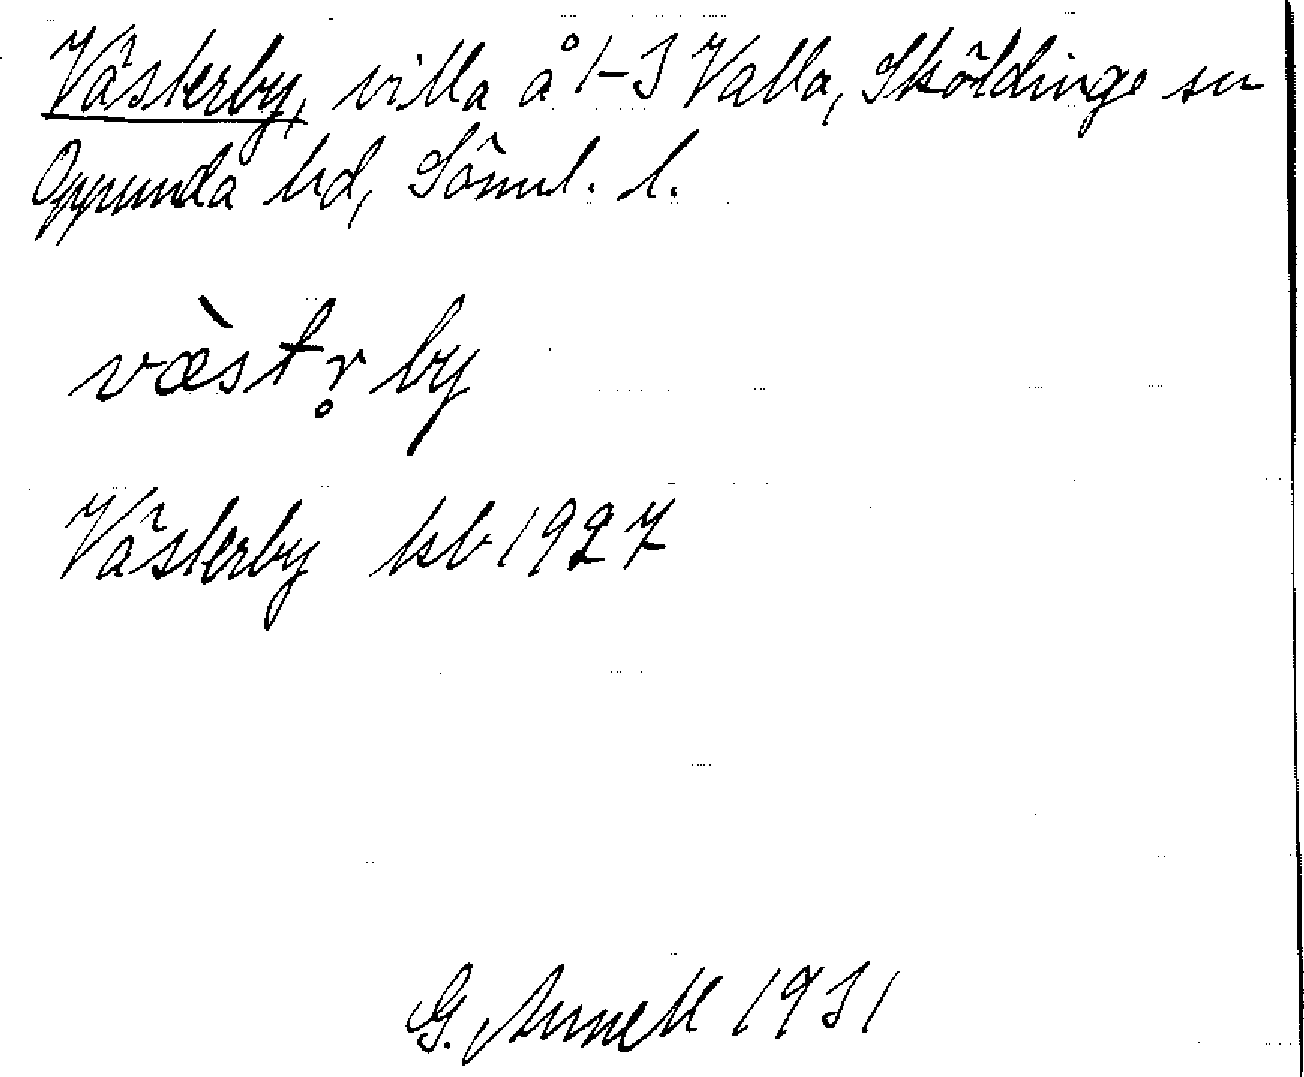 Västerby, villa å 1-3 Valla, Sköldinge sn
Oppunda hd, Söml. l.
væ̀str̥by
Västerby kb 1927
G. Annell 1931